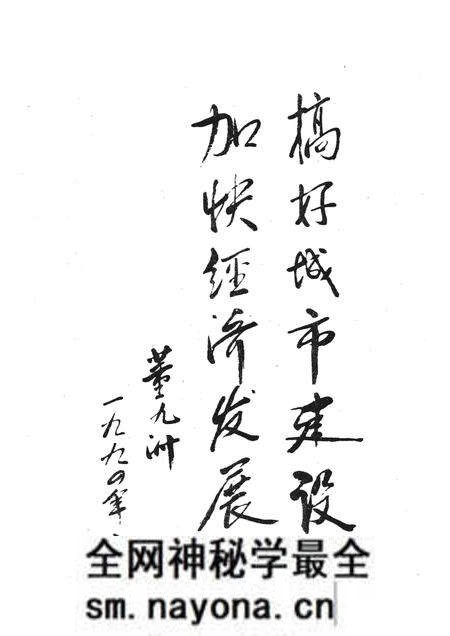 搞好城市建设
加快經济发展
董九洲
一九九四年
全网神秘学最全
sm.nayona.cn